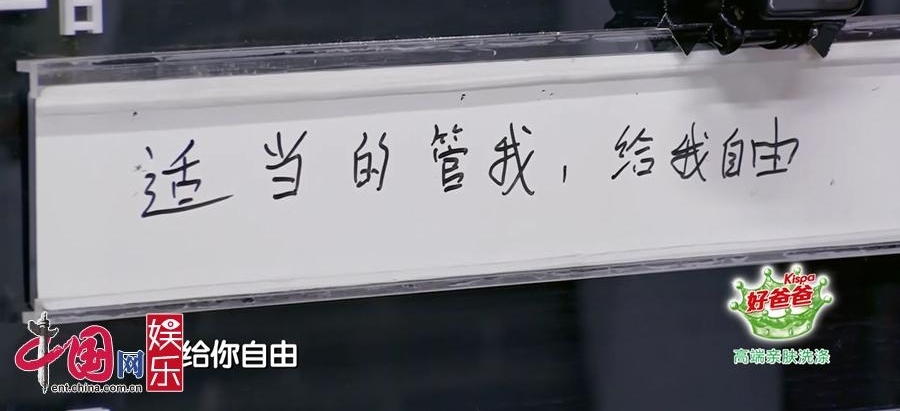 适当的管我，给我自由
Kispa
好爸爸
高端亲肤洗涤
中国网
娱乐
ent.china.com.cn
给你自由